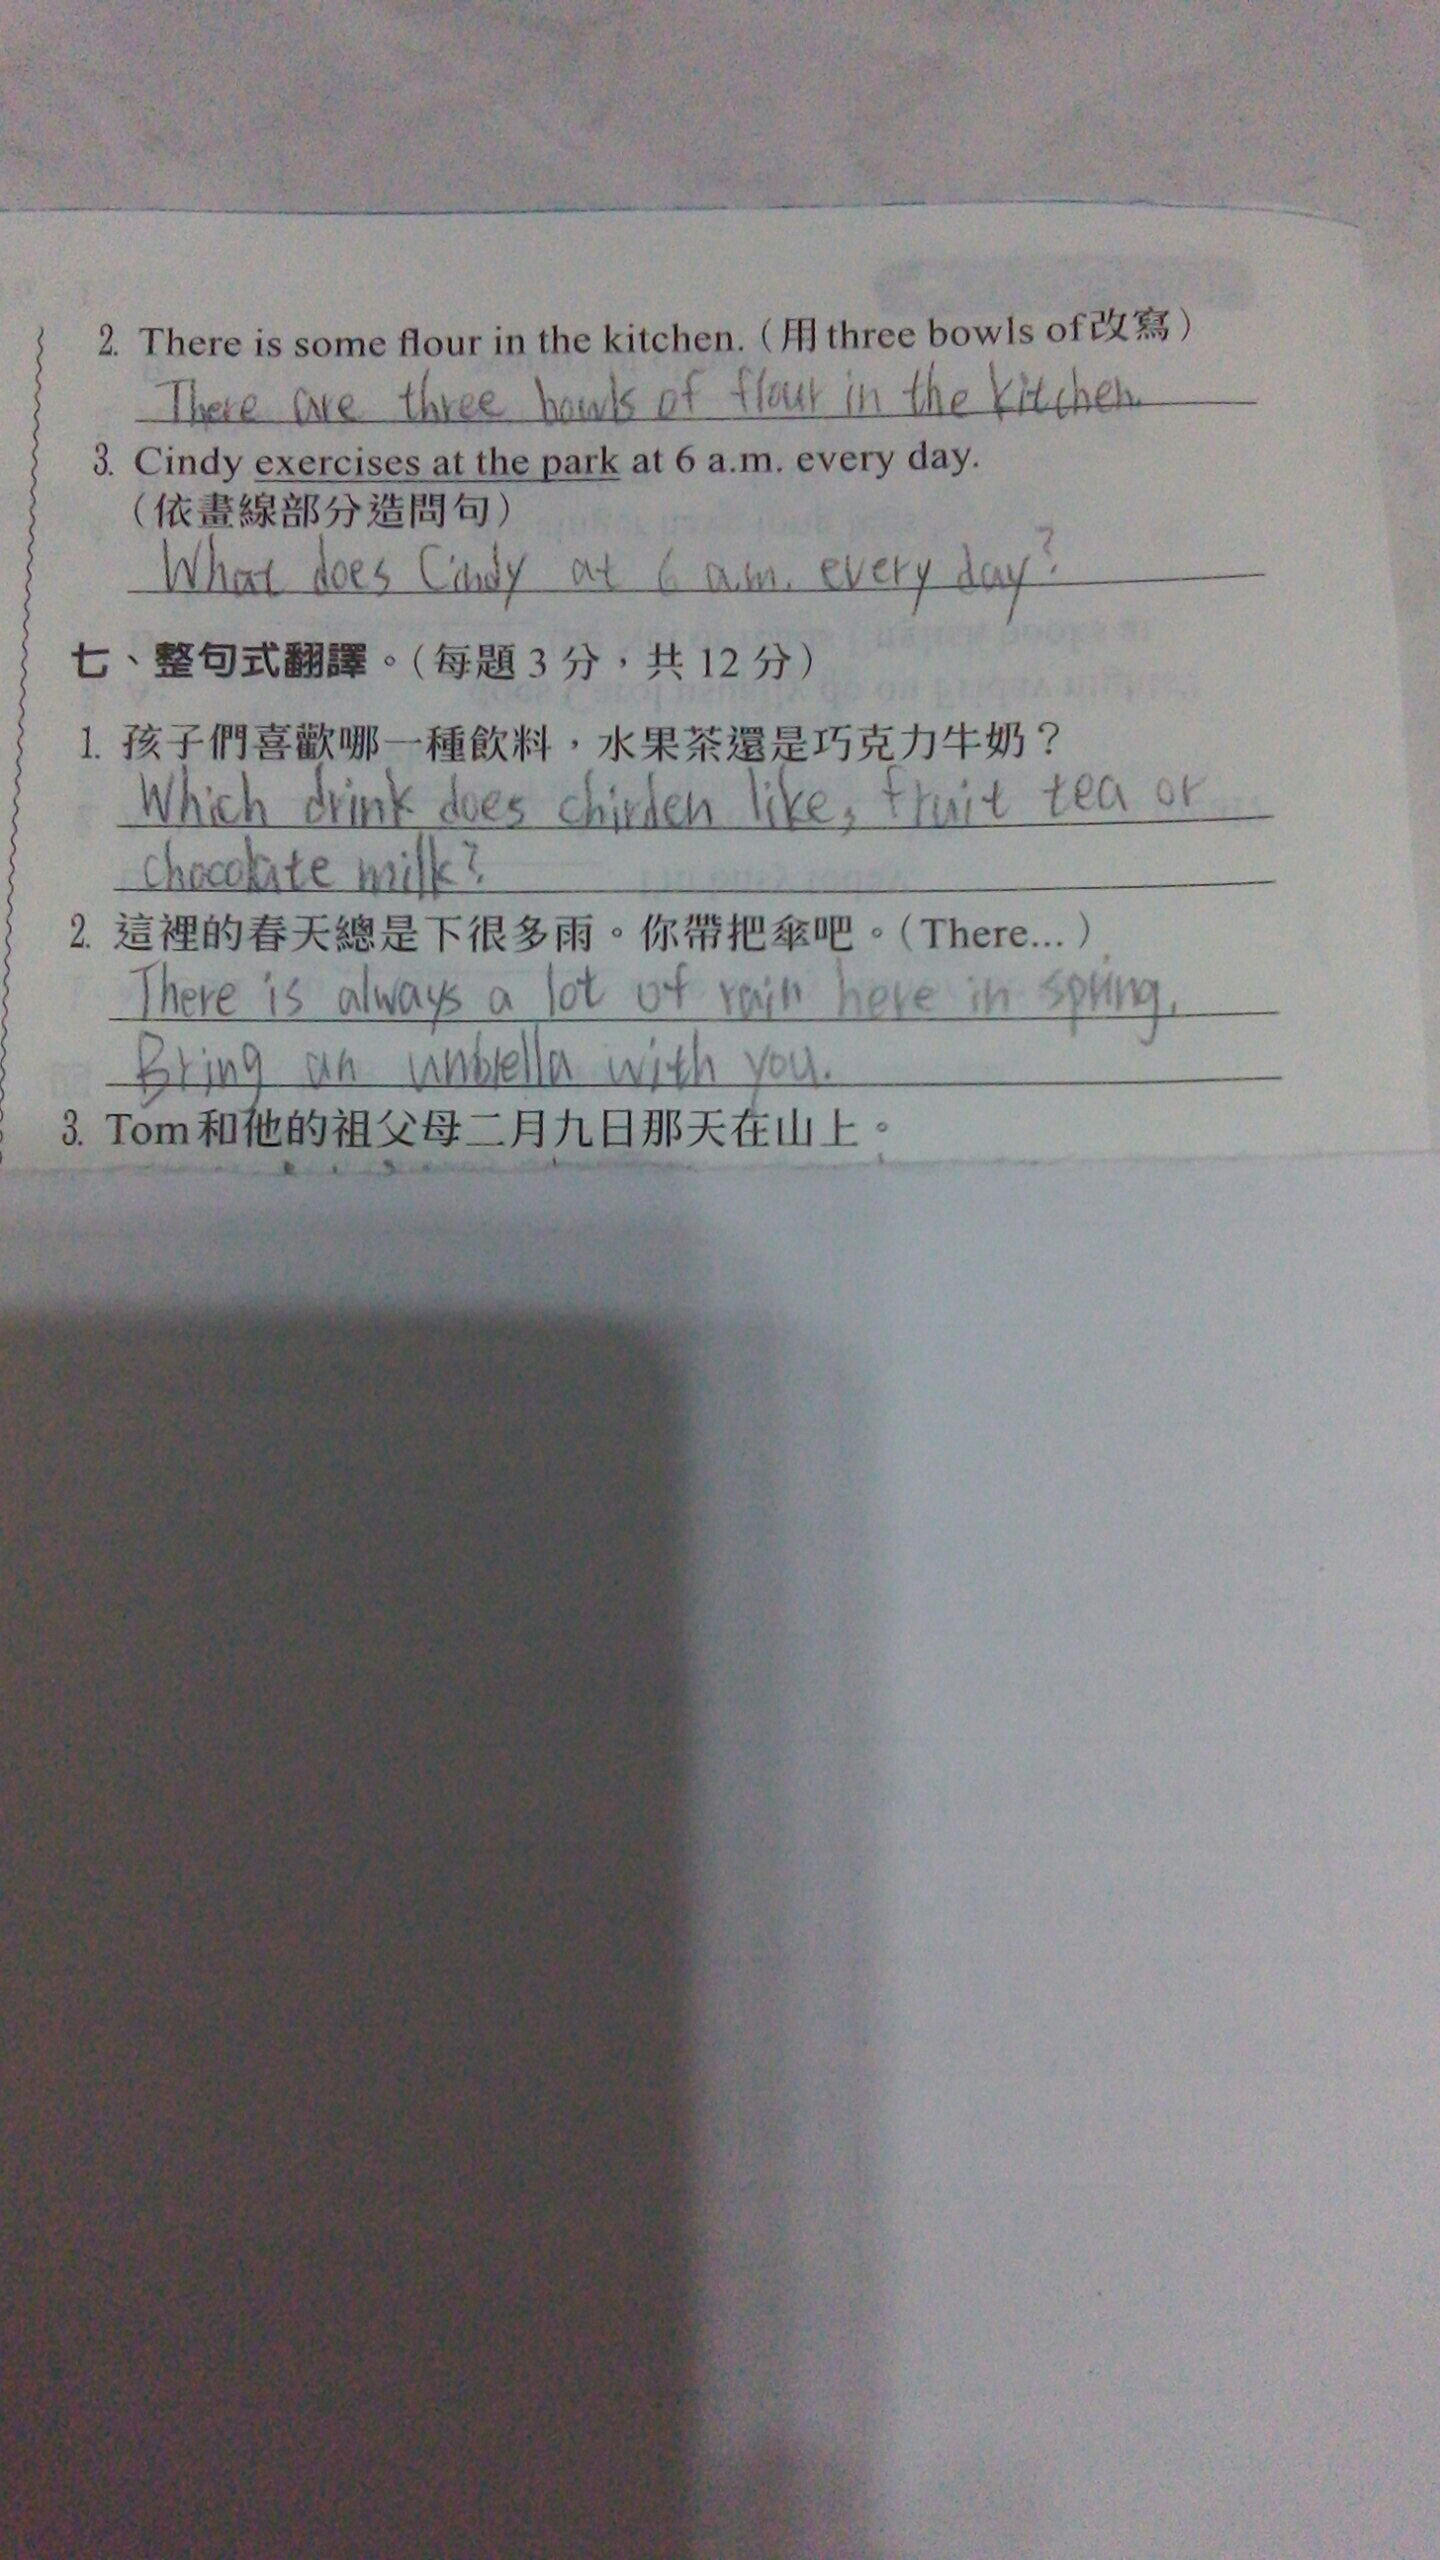 2. There is some flour in the kitchen.(用three bowls of改寫)
There are three bowls of flour in the kitchen.
3. Cindy exercises at the park at 6 a.m. every day.
(依畫線部分造問句)
What does Cindy at 6 a.m. every day?
七、整句式翻譯。(每題3分,共12分)
1. 孩子們喜歡哪一種飲料,水果茶還是巧克力牛奶?
Which drink does chirlden like, fruit tea or
chocolate milk?
2. 這裡的春天總是下很多雨。你帶把傘吧。(There...)
There is always a lot of rain here in spring.
Bring an unbrella with you.
3. Tom和他的祖父母二月九日那天在山上。